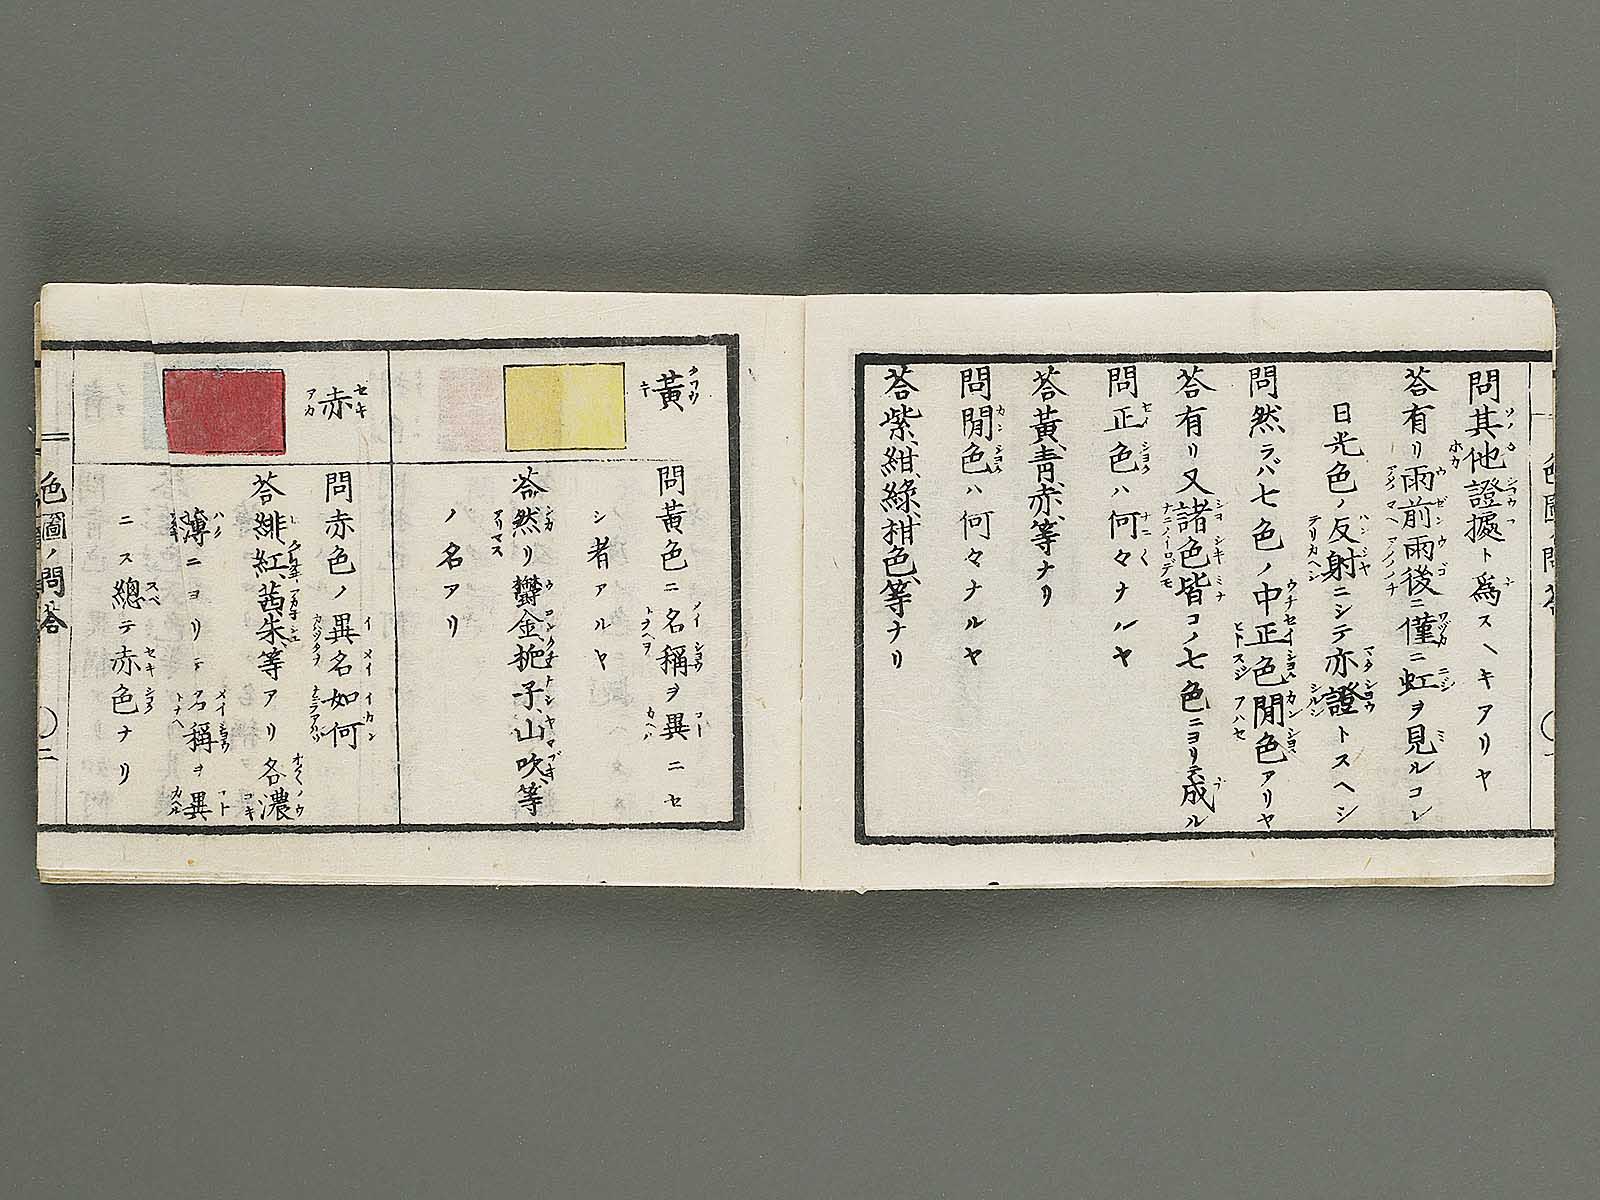 問其他證據ト爲スヘキアリヤ
答有リ雨前雨後ニ僅ニ虹ヲ見ルコレ
日光色ノ反射ニシテ亦證トスヘシ
問然ラバ七色ノ中正色間色アリヤ
答有リ又諸色皆コノ七色ニヨリテ成ル
問正色ハ何々ナルヤ
答黃、靑、赤、等ナリ
問間色ハ何々ナルヤ
答紫、紺、綠、柑色、等ナリ
黃
問黃色ニ名稱ヲ異ニセ
シ者アルヤ
答然リ鬱金、梔子、山吹、等
ノ名アリ
赤
問赤色ノ異名如何
答緋、紅、茜、朱、等アリ各濃
薄ニヨリテ名稱ヲ異
ニス總テ赤色ナリ
色圖ノ問答
二